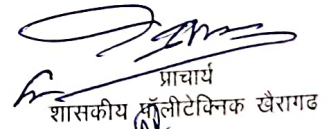 प्राचार्य
शासकीय पॉलीटेक्निक खैरागढ